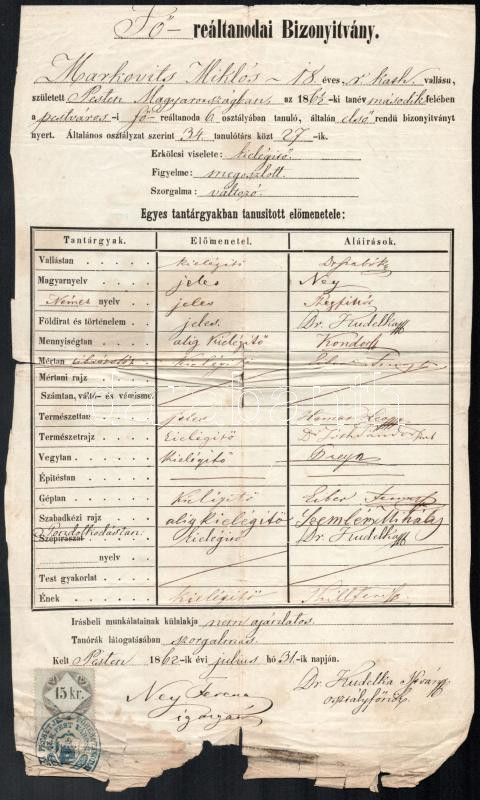 Fő- reáltanodai Bizonyitvány.
Markovits Miklós - 18 éves, r. kath. vallásu,
született Pesten Magyarországban, az 1862-ki tanév második felében
a pestváros-i fő- reáltanoda 6 osztályában tanuló, általán első rendű bizonyitványt
nyert. Általános osztályzat szerint 34 tanulótárs közt 27-ik.
Erkölcsi viselete: kielégitő
Figyelme: megoszlott.
Szorgalma: változó.
Egyes tantárgyakban tanusitott előmenetele:
Tantárgyak. Előmenetel. Aláirások.
Vallástan kielégitő
Magyarnyelv jeles Ney
Német nyelv jeles
Földirat és történelem jeles. Dr. Hudelka
Mennyiségtan alig kielégitő Kondor
Mértan kielégitő
Mértani rajz
Számtan, váltó- és vámisme.
Természettan jeles
Természetrajz kielégitő
Vegytan kielégitő
Épitéstan
Géptan kielégitő
Szabadkézi rajz alig kielégitő Szemlér Mihály
Gondolkodástan Szépirászat kielégitő Dr. Hudelka
nyelv
Test gyakorlat
Ének kielégitő
Irásbeli munkálatainak külalakja nem ajánlatos.
Tanórák látogatásában szorgalmas.
Kelt Pesten 1862-ik évi julius hó 31-ik napján.
15 kr.
Ney Ferenc
igazgató
Dr. Hudelka
osztályfőnök